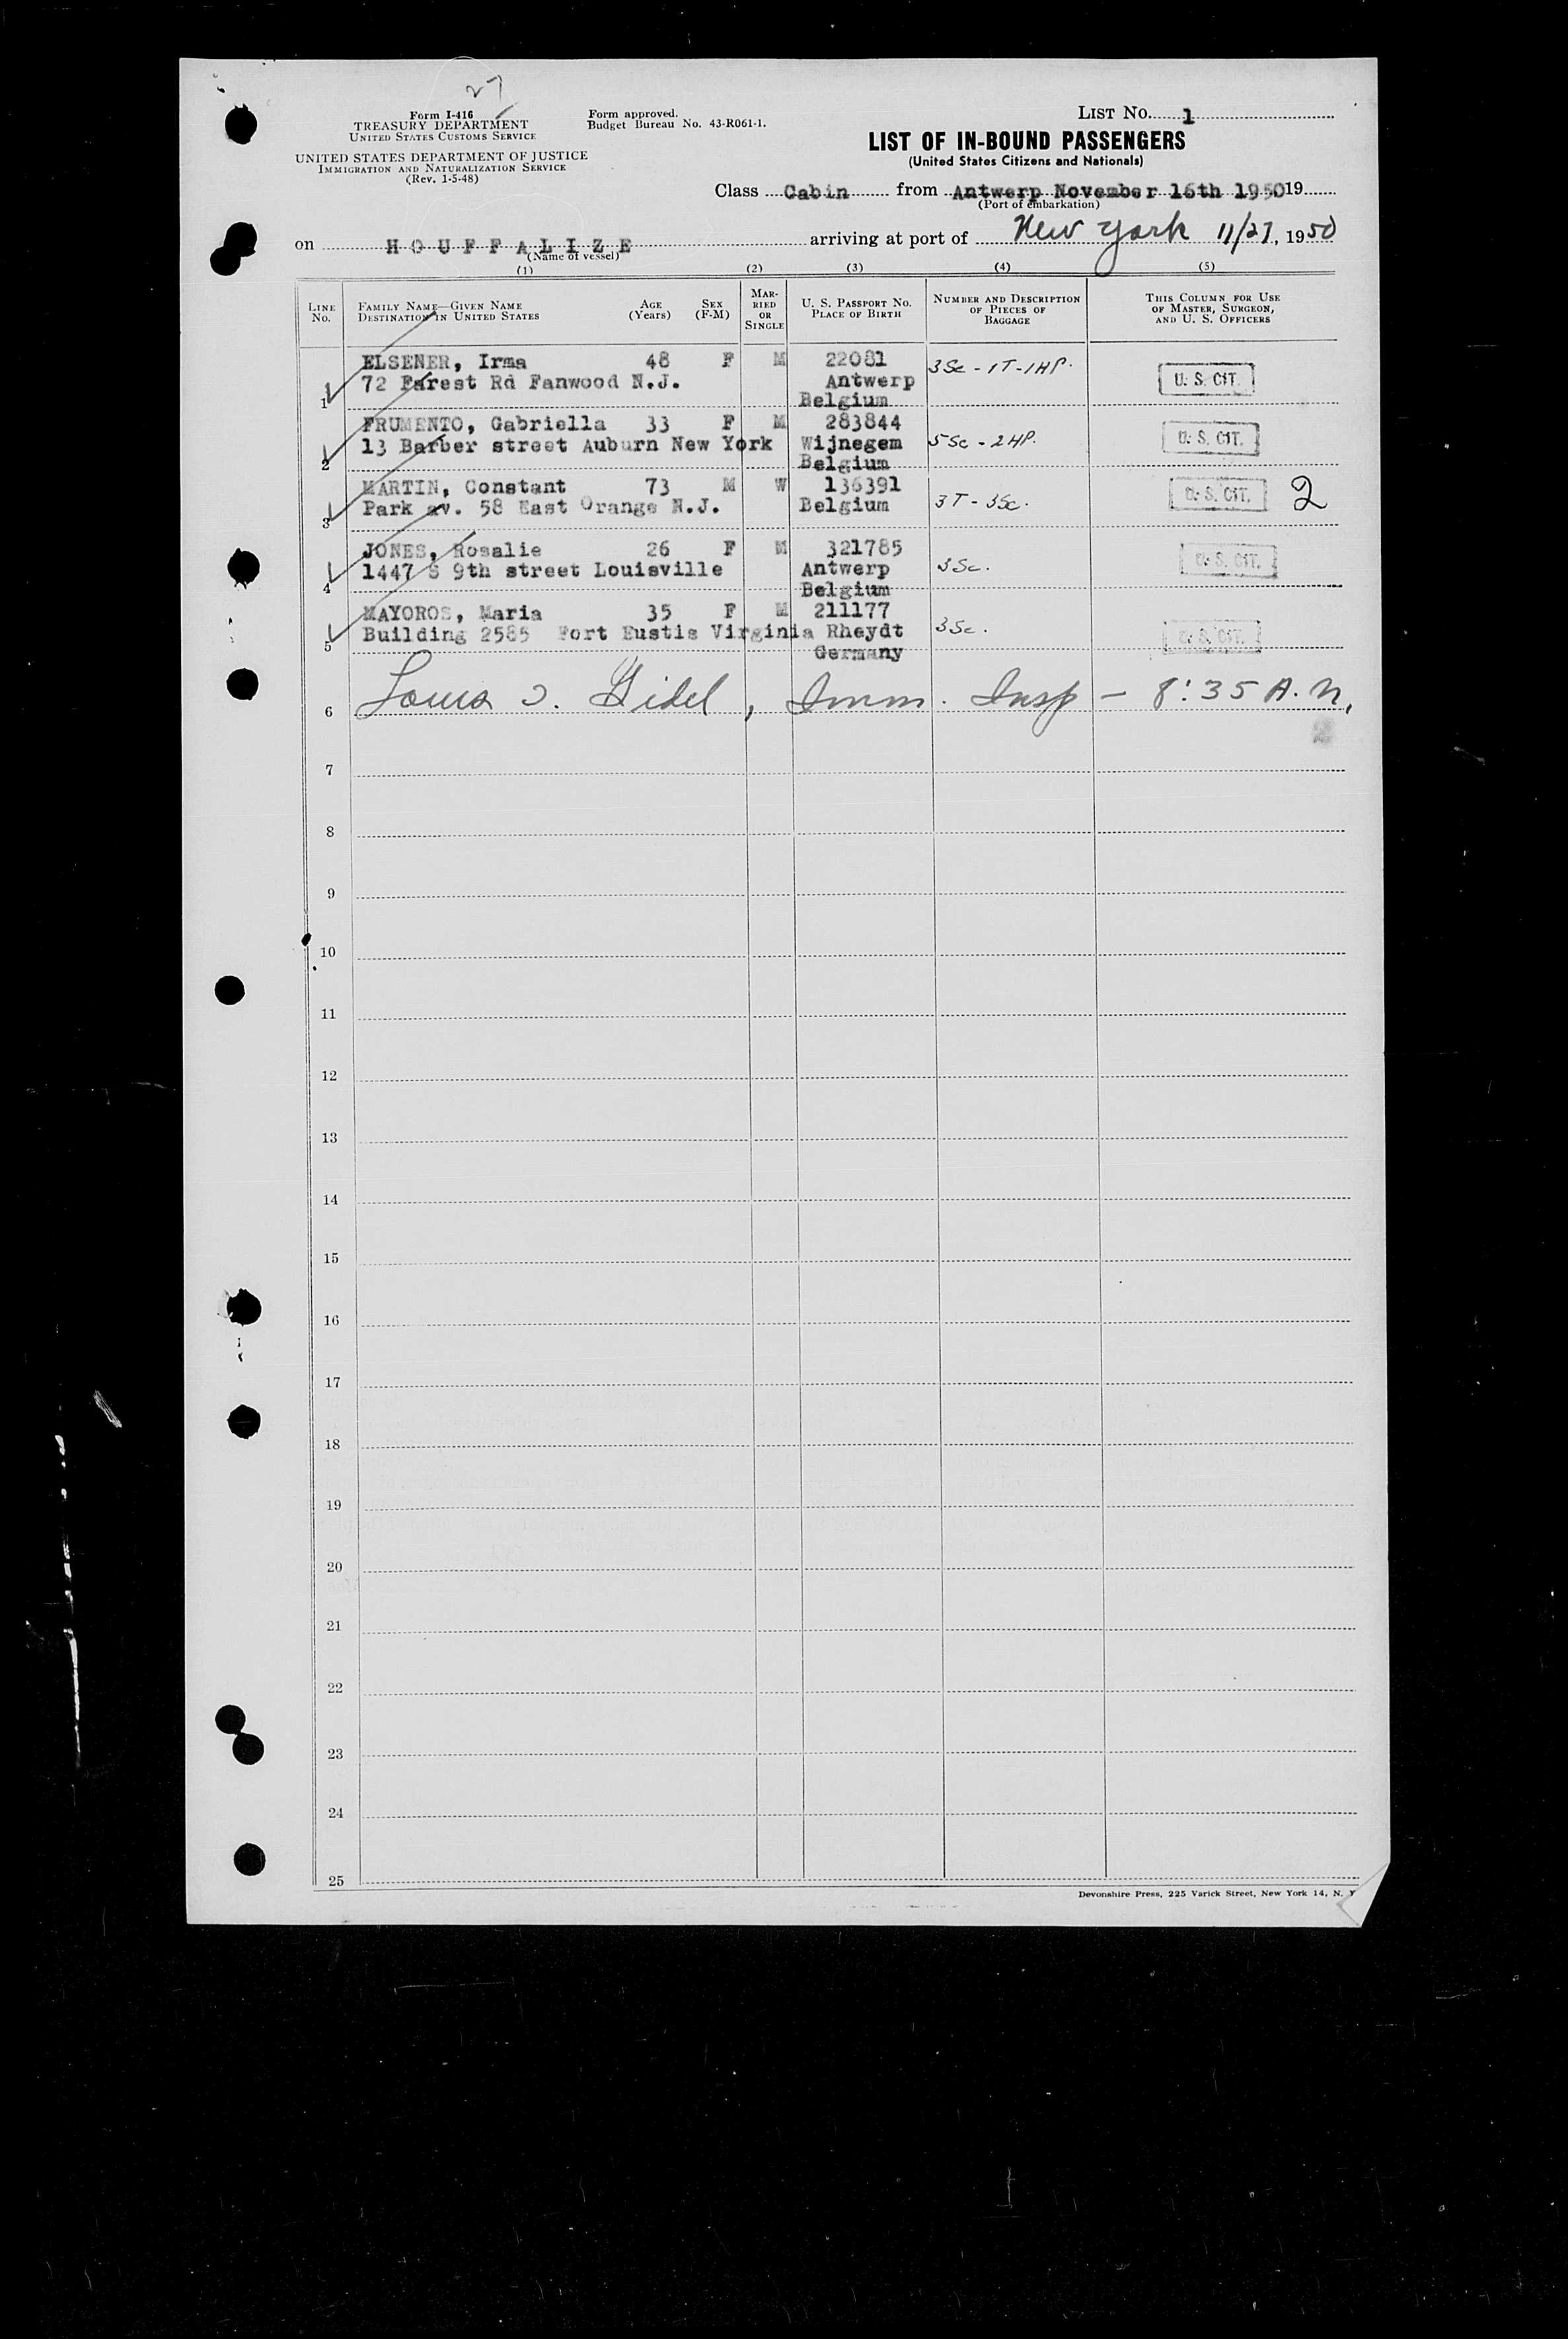 27
Form I-416
TREASURY DEPARTMENT
UNITED STATES CUSTOMS SERVICE
UNITED STATES DEPARTMENT OF JUSTICE
IMMIGRATION AND NATURALIZATION SERVICE
(Rev. 1-5-48)
Form approved.
Budget Bureau No. 43-R061-1.
LIST No. 1
LIST OF IN-BOUND PASSENGERS
(United States Citizens and Nationals)
Class Cabin from Antwerp November 16th 1950 19
(Port of embarkation)
on HOUFFALIZE arriving at port of New York 11/27, 1950
(Name of vessel)
(1) (2) (3) (4) (5)
LINE No.
FAMILY NAME—GIVEN NAME
DESTINATION IN UNITED STATES
AGE (Years)
SEX (F-M)
MARRIED OR SINGLE
U. S. PASSPORT NO.
PLACE OF BIRTH
NUMBER AND DESCRIPTION OF PIECES OF BAGGAGE
THIS COLUMN FOR USE OF MASTER, SURGEON, AND U. S. OFFICERS
ELSENER, Irma 48 F M 22081 3Sc - 1T - 1HP. U. S. CIT.
1 72 Farest Rd Fanwood N.J. Antwerp
Belgium
FRUMENTO, Gabriella 33 F M 283844 5Sc - 2HP. U. S. CIT.
2 13 Barber street Auburn New York Wijnegem
Belgium
MARTIN, Constant 73 M W 136391 3T - 3Sc. U. S. CIT. 2
3 Park av. 58 East Orange N.J. Belgium
JONES, Rosalie 26 F M 321785 3Sc. U. S. CIT.
4 1447 S 9th street Louisville Antwerp
Belgium
MAYOROS, Maria 35 F M 211177 3Sc. U. S. CIT.
5 Building 2585 Fort Eustis Virginia Rheydt
Germany
6 Louis Gidel, Imm. Insp - 8:35 A.M.
2
7
8
9
10
11
12
13
14
15
16
17
18
19
20
21
22
23
24
25
Devonshire Press, 225 Varick Street, New York 14, N. Y